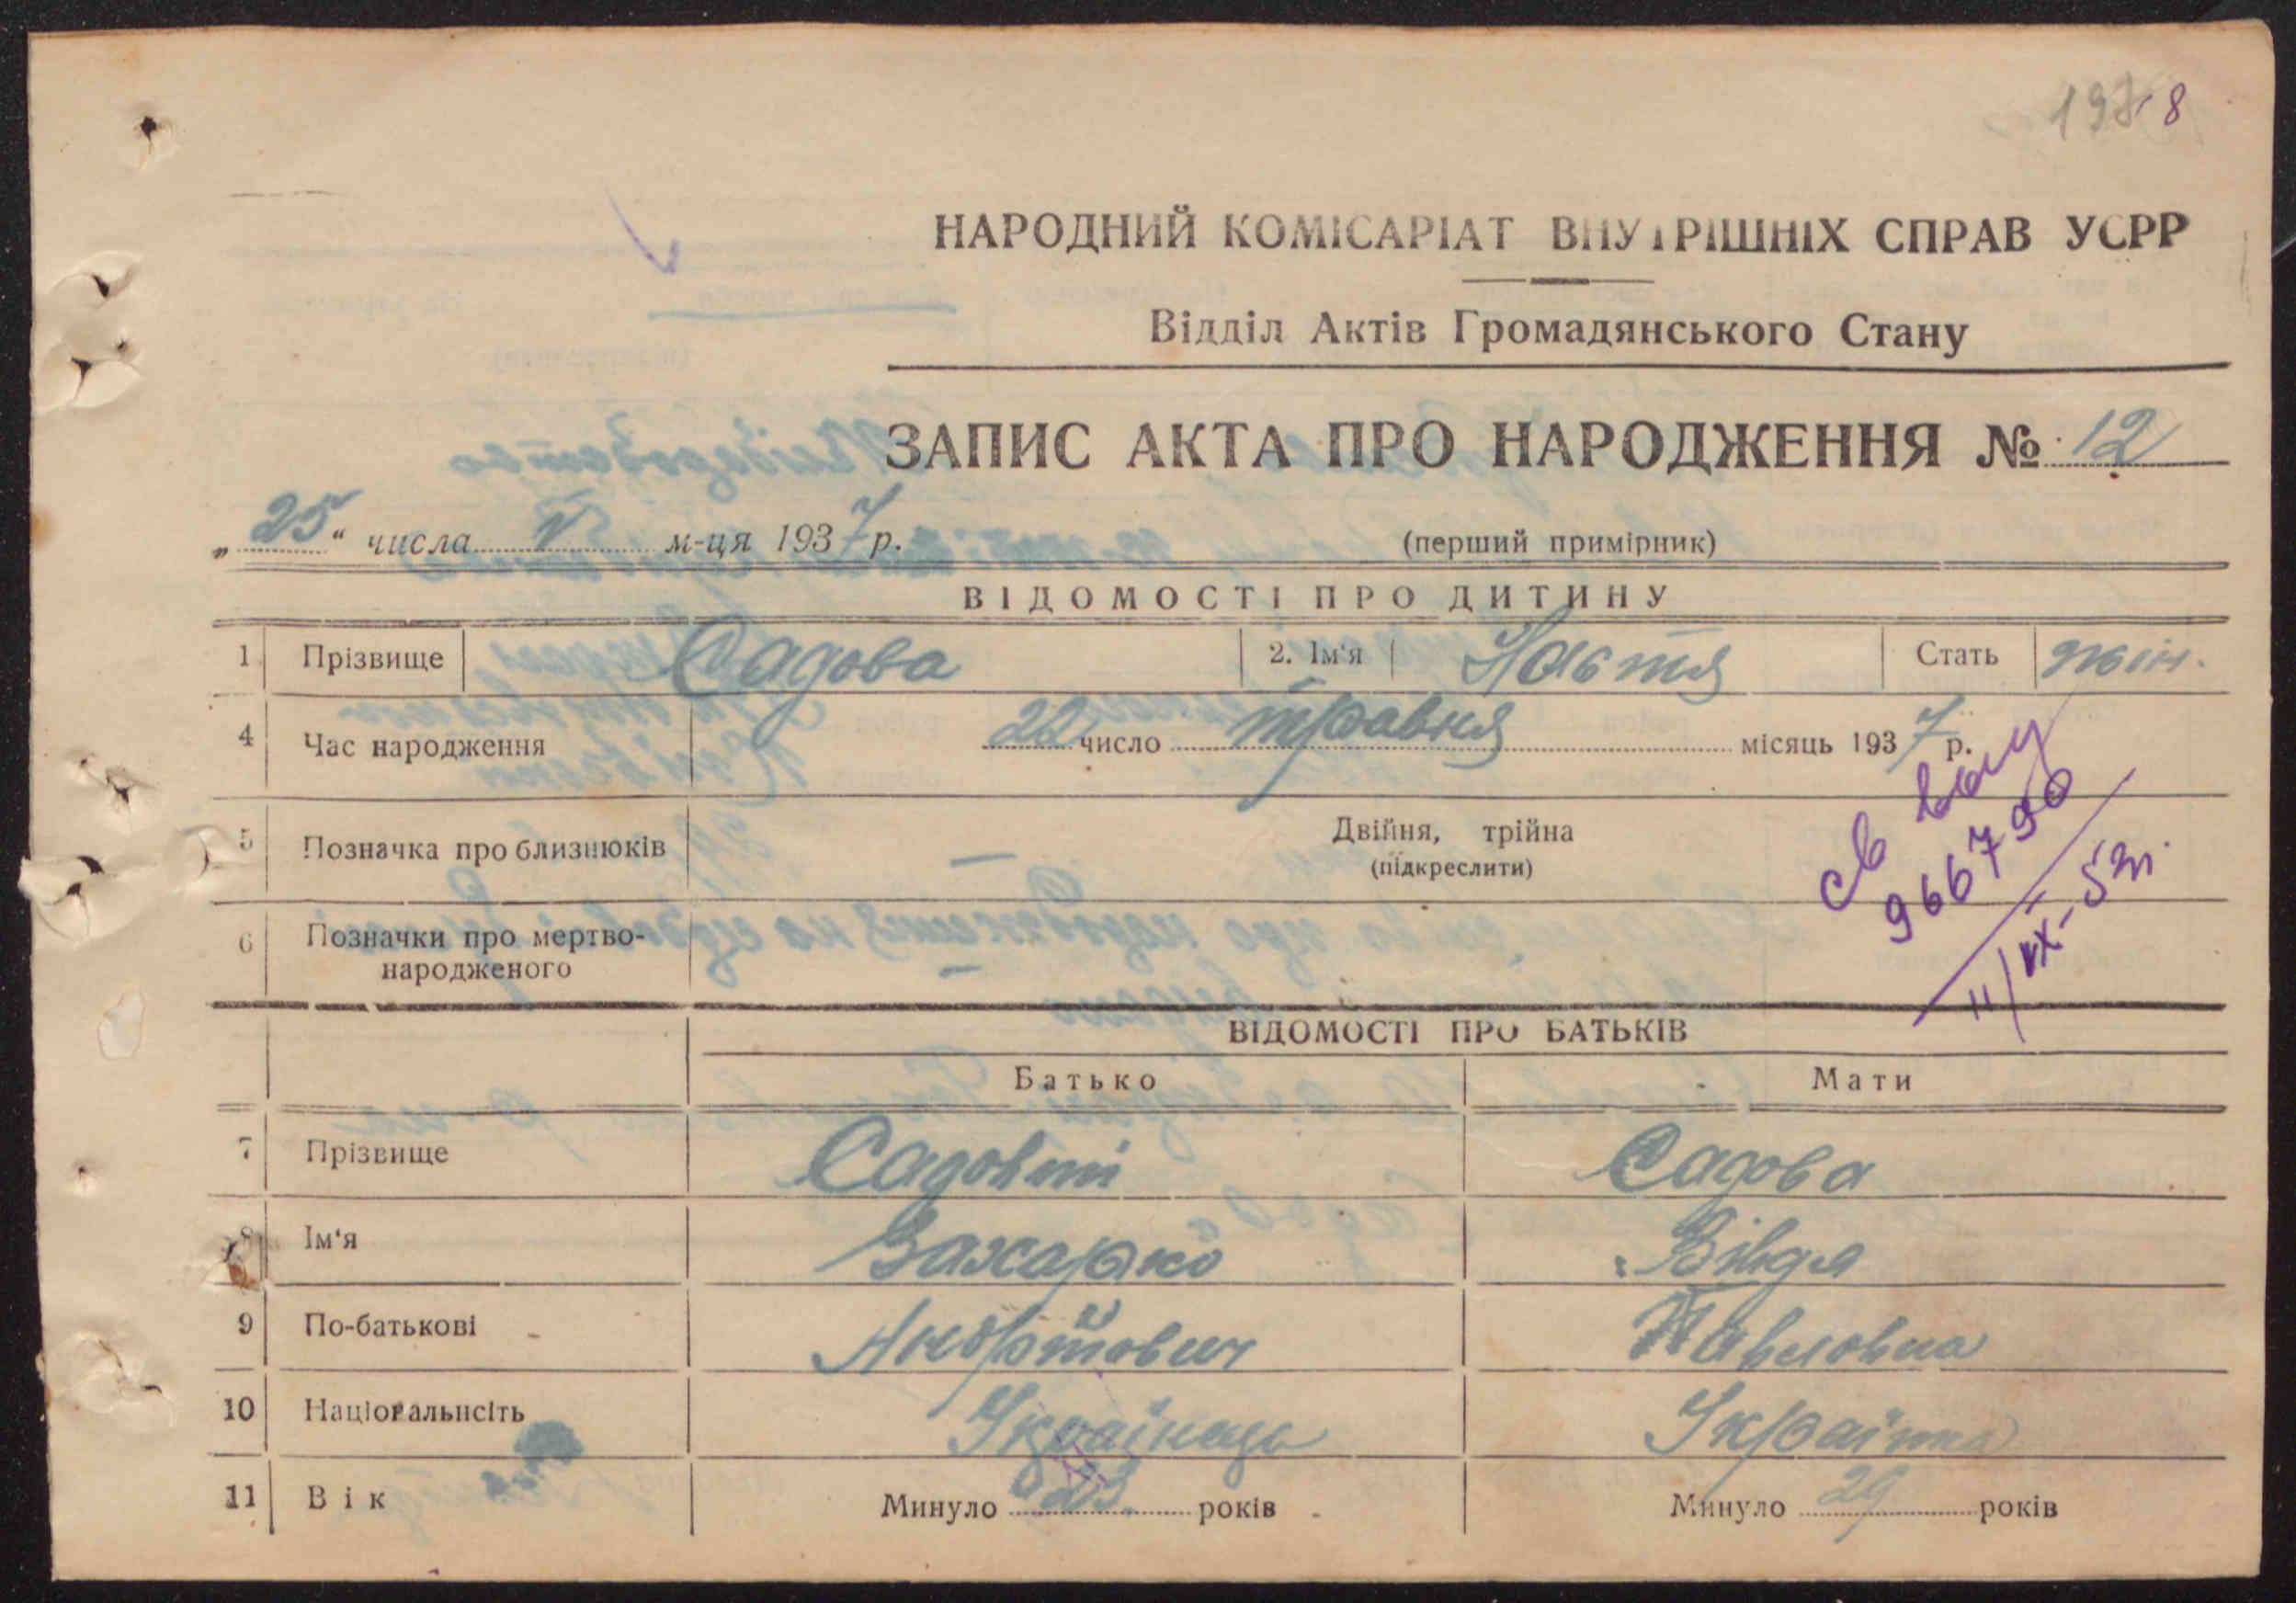 8
НАРОДНИЙ КОМІСАРІАТ ВНУТРІШНІХ СПРАВ УСРР
Відділ Актів Громадянського Стану
ЗАПИС АКТА ПРО НАРОДЖЕННЯ № 12
„25“ числа V м-ця 1937 р. (перший примірник)
ВІДОМОСТІ ПРО ДИТИНУ
1 Прізвище Садова 2. Ім'я Настя Стать жін.
4 Час народження 22 число травня місяць 1937 р.
5 Позначка про близнюків Двійня, трійна
(підкреслити)
св 966790
6 Позначки про мертво-
народженого
ВІДОМОСТІ ПРО БАТЬКІВ
Батько Мати
7 Прізвище Садовий Садова
8 Ім'я Захарко Вівдя
9 По-батькові Павловна
10 Національнсіть Українець Українка
11 Вік Минуло років Минуло 29 років